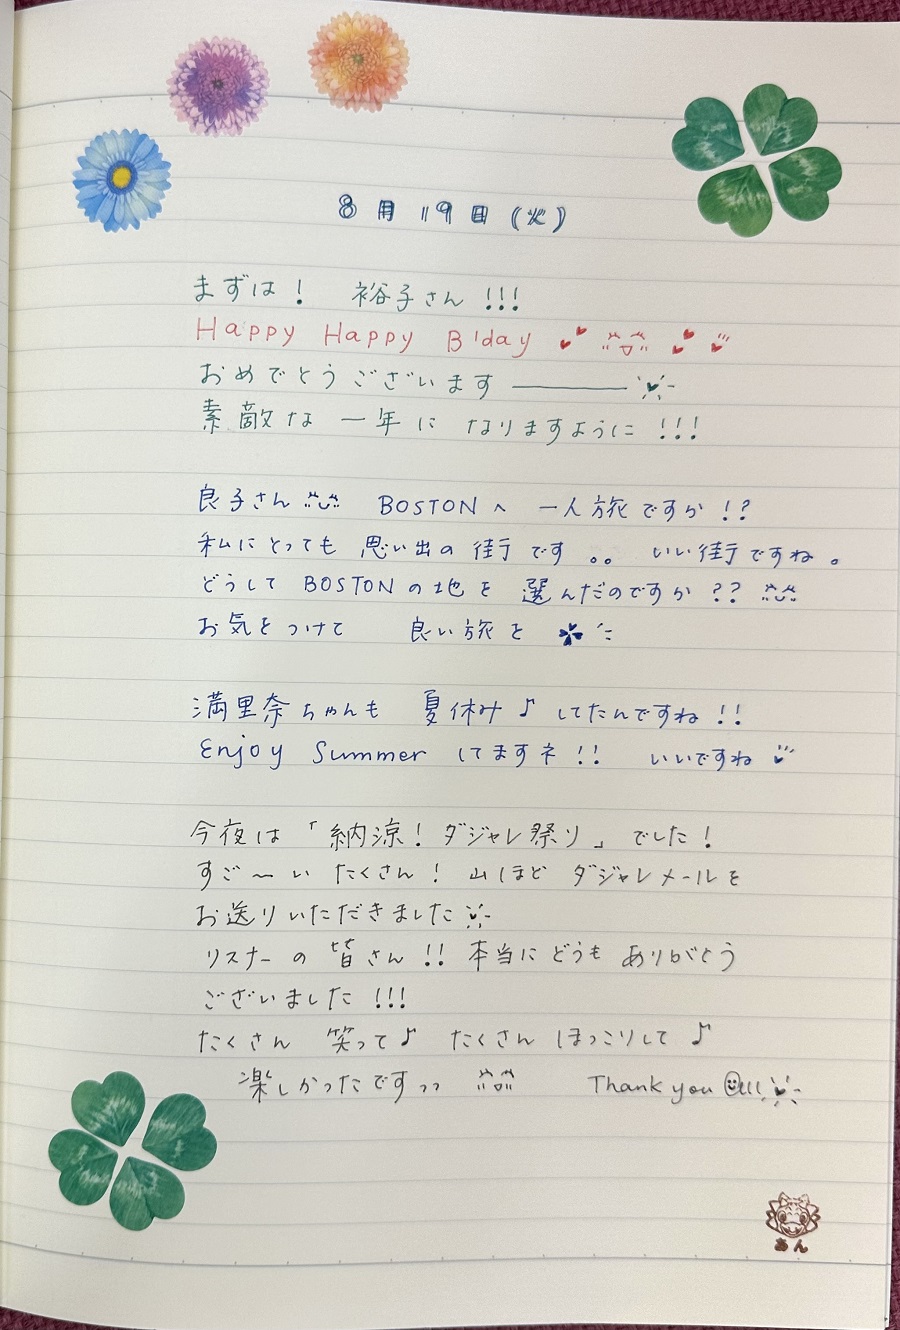 8月19日(火)
まずは! 裕子さん!!!
Happy Happy B'day
おめでとうございます―――
素敵な 一年に なりますように!!!
良子さん BOSTONへ 一人旅ですか!?
私にとっても 思い出の 街です 。。 いい街ですね。
どうして BOSTONの地を 選んだのですか??
お気をつけて 良い旅を
満里奈ちゃんも 夏休み♪ してたんですね!!
Enjoy Summer してますネ!! いいですね
今夜は「納涼!ダジャレ祭り」でした!
すご〜い たくさん! 山ほど ダジャレメールを
お送りいただきました
リスナーの 皆さん!! 本当に どうも ありがとう
ございました!!!
たくさん 笑って♪ たくさん ほっこりして♪
楽しかったですっっ Thank you
あん